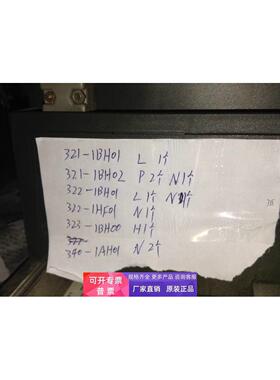 321-1BH01 L 1个
321-1BH02 P 2个 N 1个
322-1BH01 L 1个 N 1个
322-1HF01 N 1个
323-1BH00 H 1个
340-1AH01 N 2个
可开专票
普票
规格齐全 更多产品咨询客服
厂家直销 原装正品